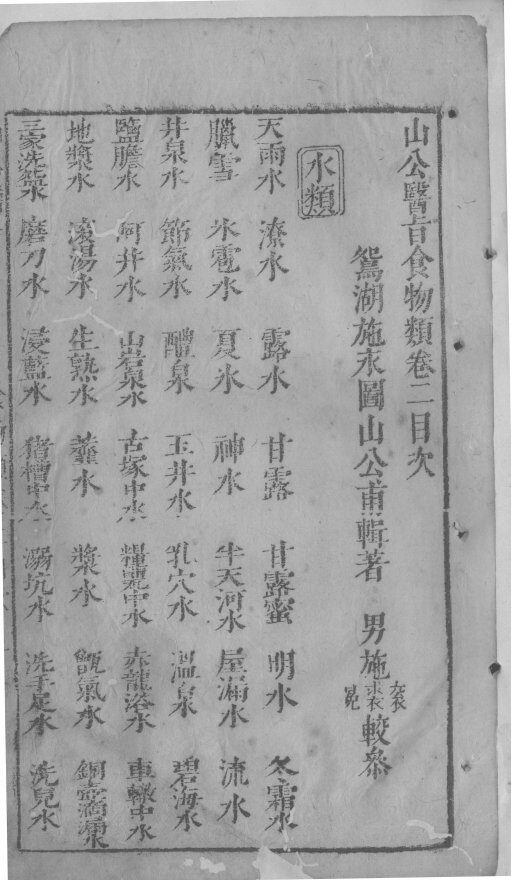 山公醫旨食物類卷二目次
鴛湖施永圖山公甫輯著 男施 較叅
水類
天雨水 潦水 露水 甘露 甘露蜜 明水 冬霜水
臘雪 氷雹水 夏氷 神水 半天河水 屋漏水 流水
井泉水 節氣水 醴泉 玉井水 乳穴水 溫泉 碧海水
鹽膽水 阿井水 山岩泉水 古塚中水 糧甖中水 赤龍浴水 車轍中水
地漿水 滚湯水 生熟水 虀水 漿水 甑氣水 銅壺滴漏水
三家洗碗水 磨刀水 浸藍水 猪槽中水 溺坑水 洗手足水 洗兒水